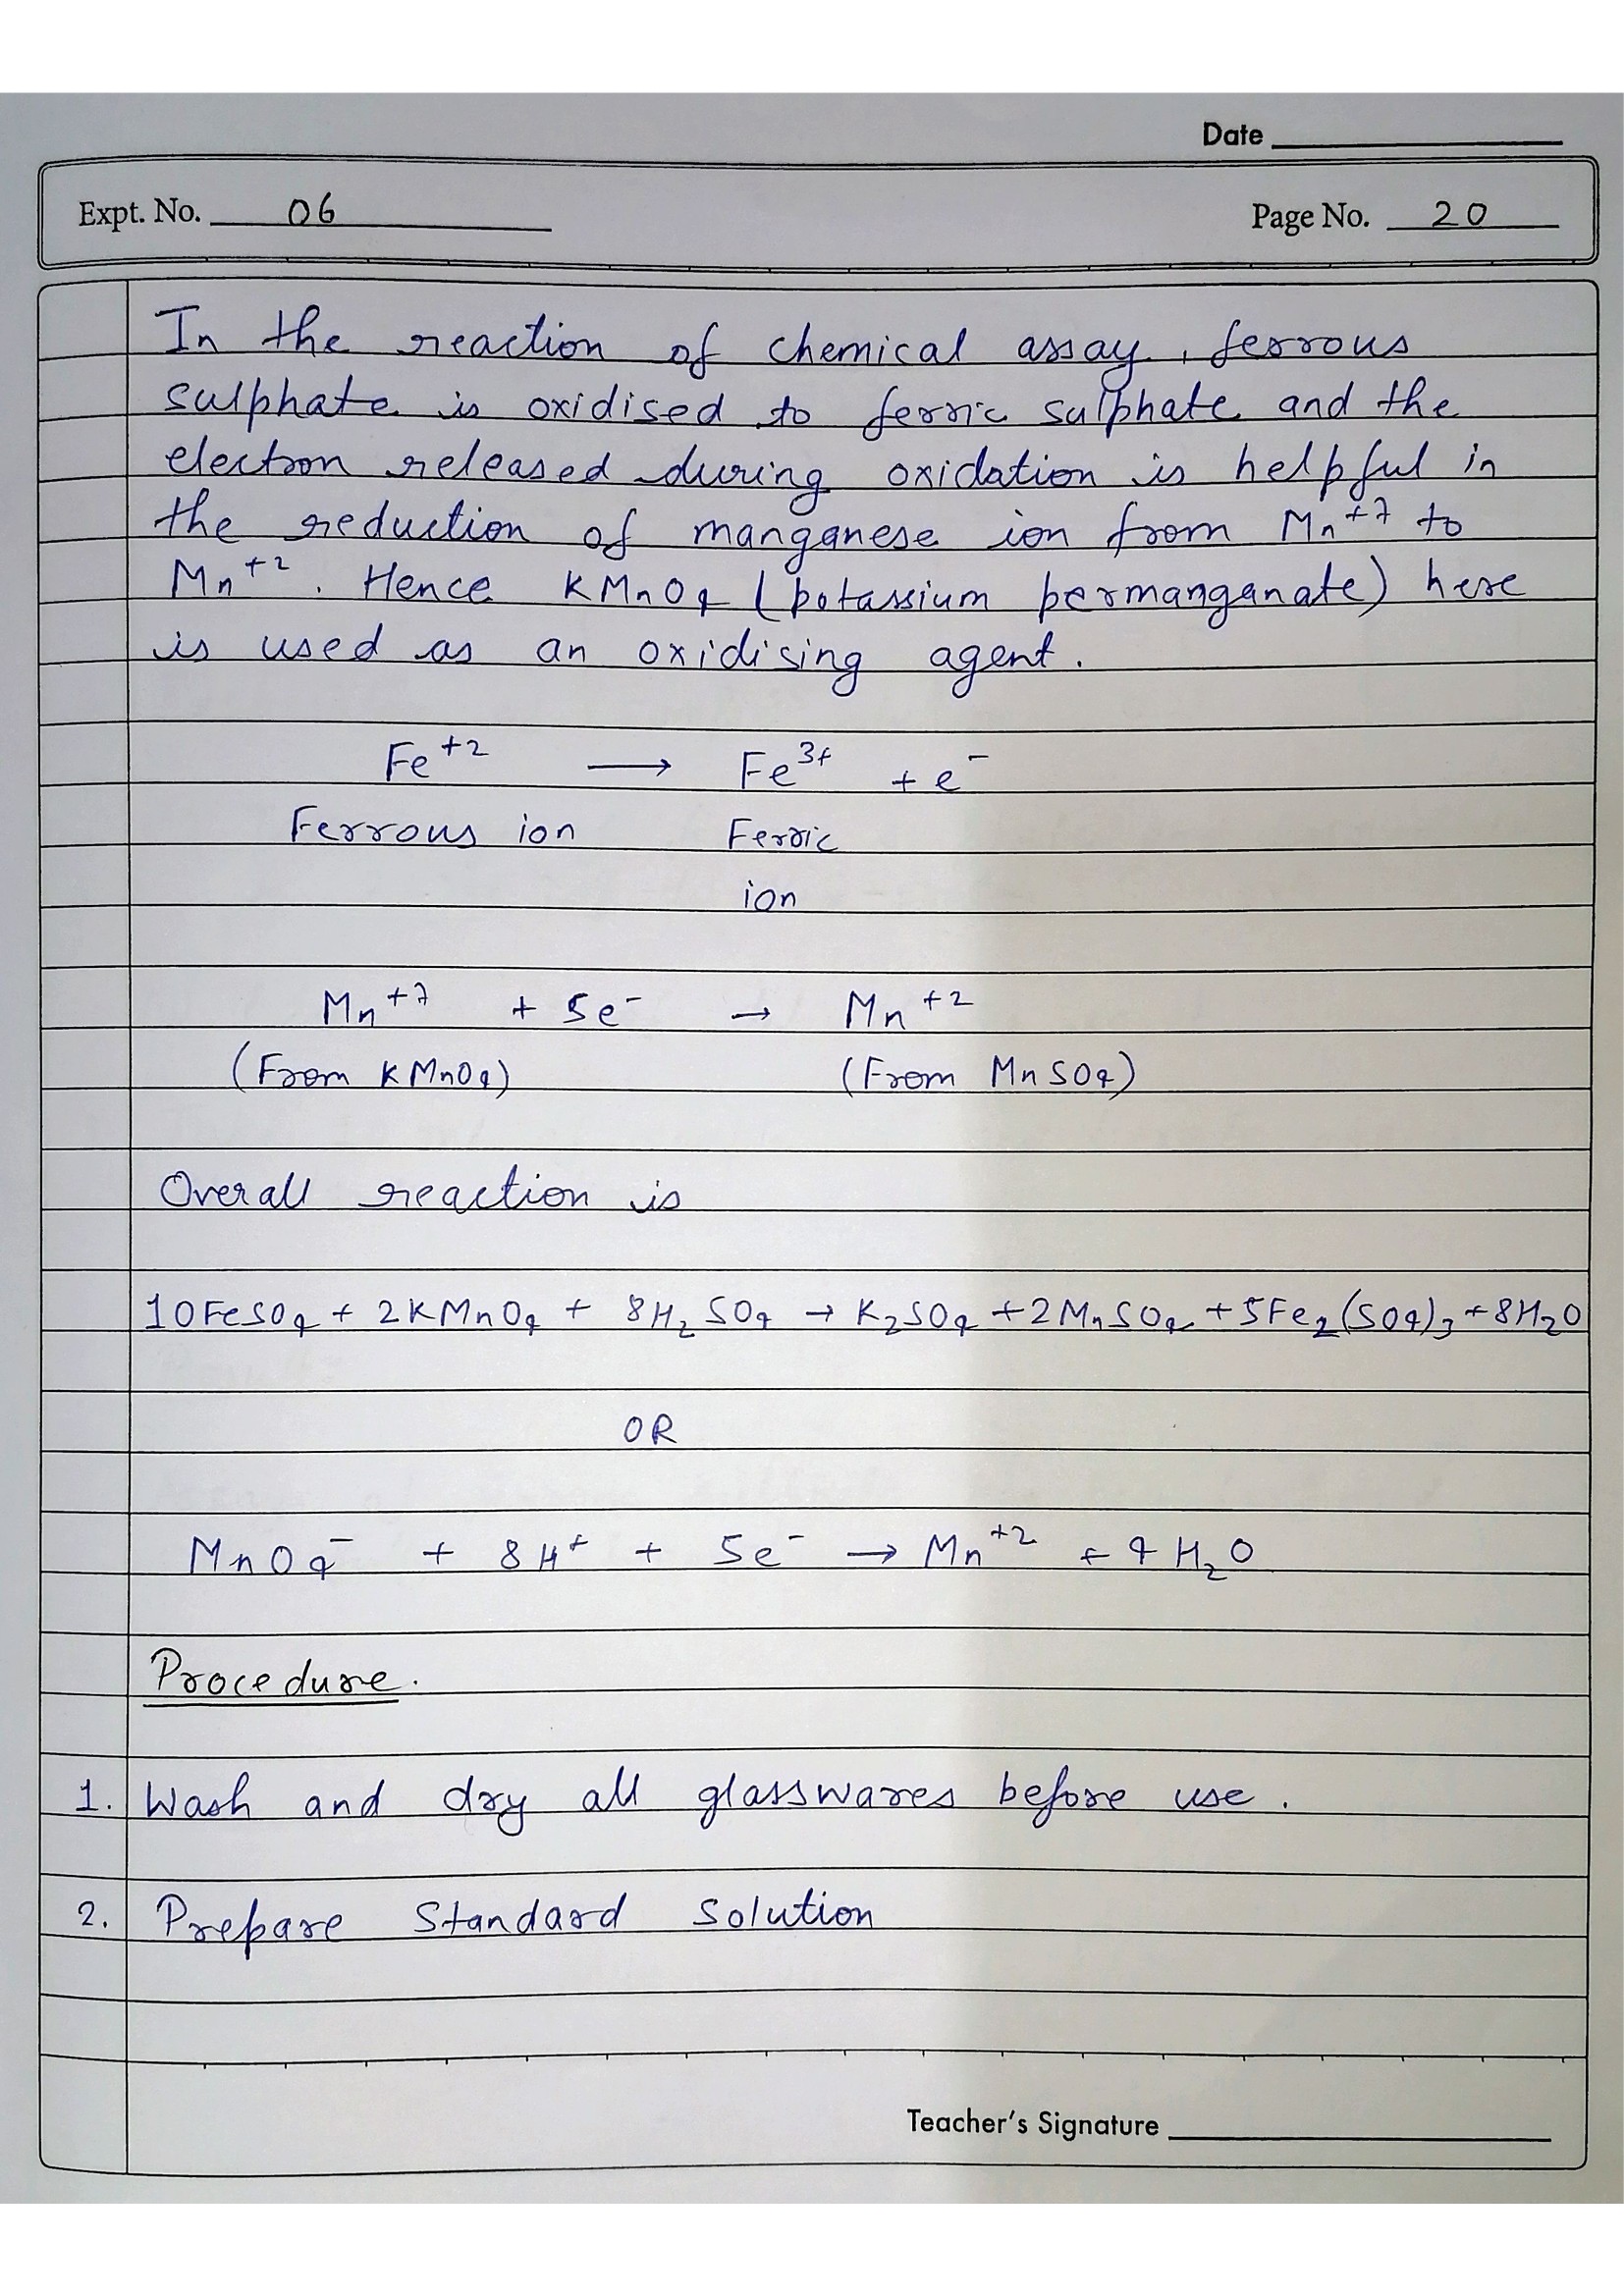 Date
Expt. No. 06 Page No. 20
In the reaction of chemical assay, ferrous
sulphate is oxidised to ferric sulphate and the
electron released during oxidation is helpful in
the reduction of manganese ion from Mn⁺⁷ to
Mn⁺². Hence KMnO₄ (potassium permanganate) here
is used as an oxidising agent.
Fe⁺² ⟶ Fe³⁺ + e⁻
Ferrous ion Ferric
ion
Mn⁺⁷ + 5e⁻ → Mn⁺²
(From KMnO₄) (From MnSO₄)
Overall reaction is
10FeSO₄ + 2KMnO₄ + 8H₂SO₄ → K₂SO₄ + 2MnSO₄ + 5Fe₂(SO₄)₃ + 8H₂O
OR
MnO₄⁻ + 8H⁺ + 5e⁻ → Mn⁺² + 4H₂O
Procedure.
1. Wash and dry all glasswares before use.
2. Prepare Standard Solution
Teacher's Signature